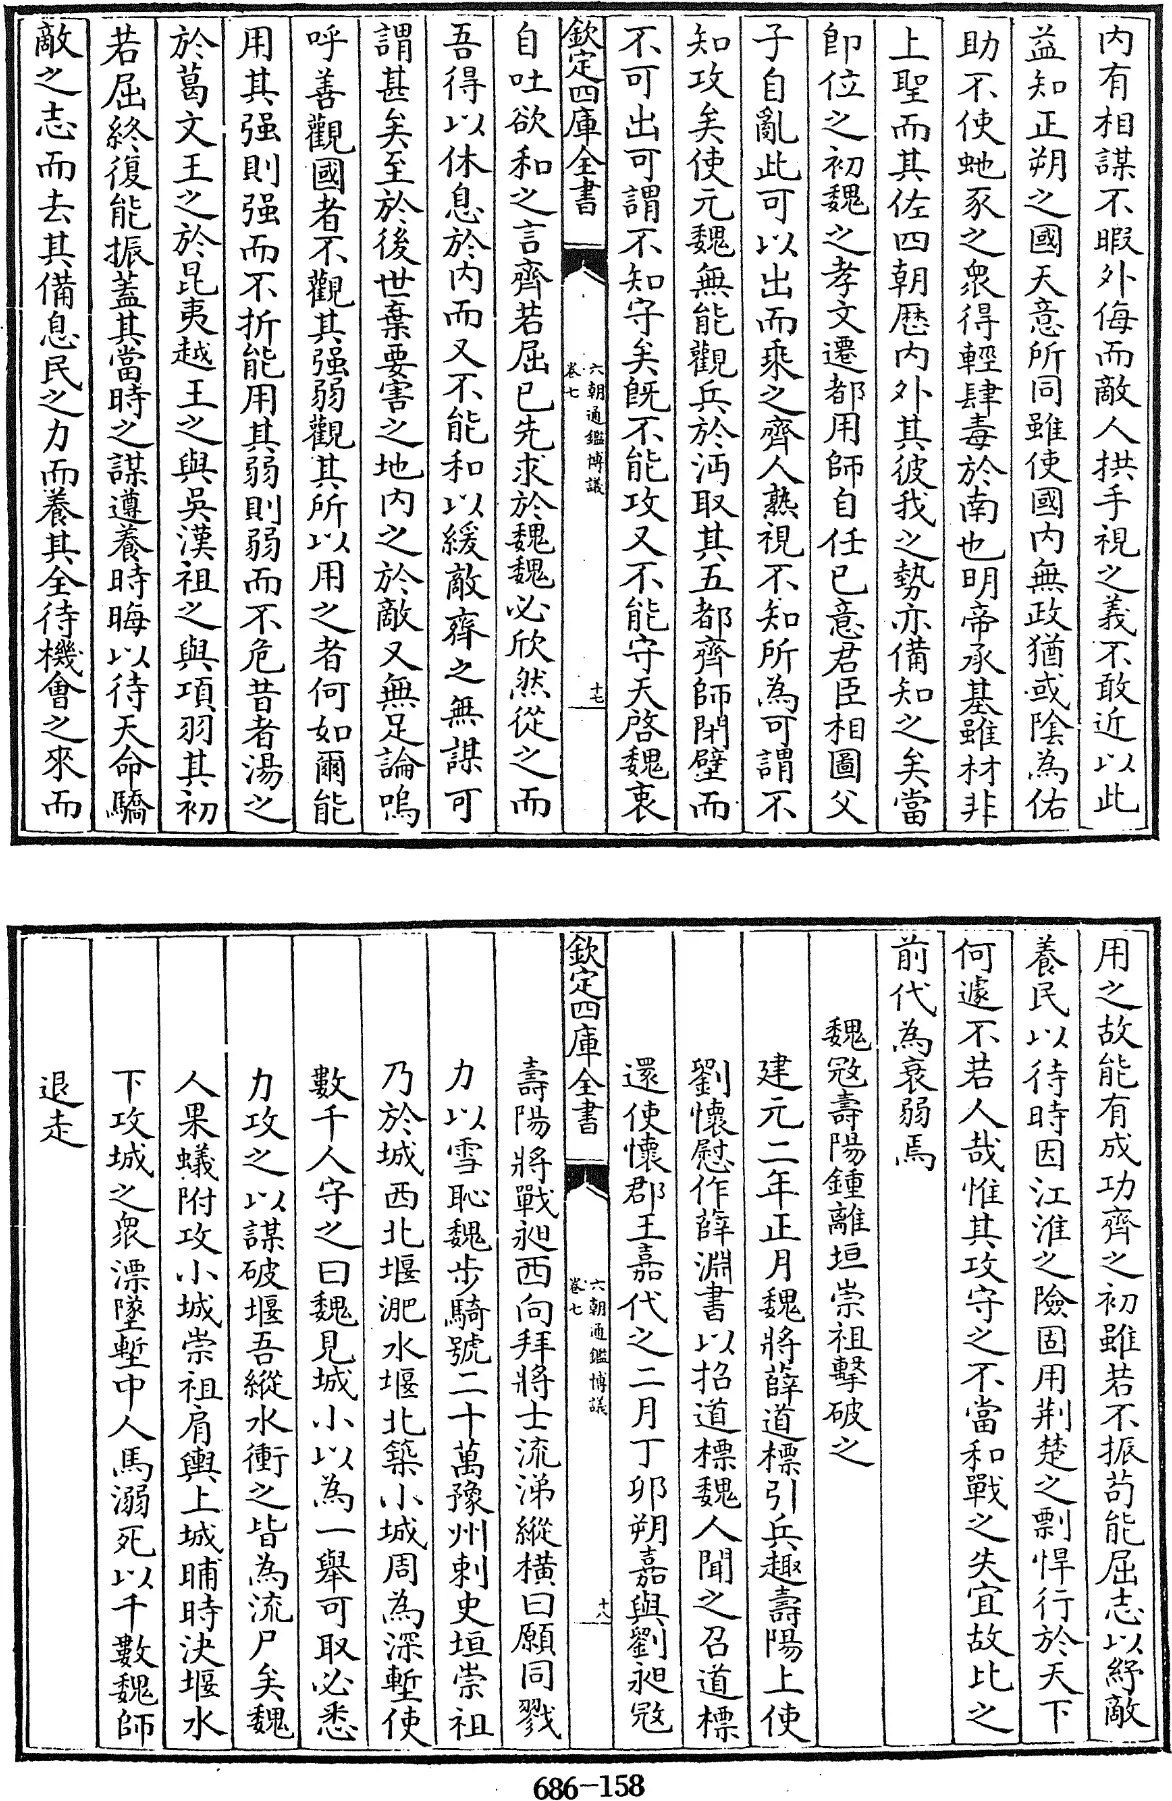 內有相謀不暇外侮而敵人拱手視之義不敢近以此
益知正朔之國天意所同雖使國内無政猶或陰為佑
助不使虵豕之衆得輕肆毒於南也明帝承基雖材非
上聖而其佐四朝歴内外其彼我之勢亦備知之矣當
即位之初魏之孝文遷都用師自任已意君臣相圖父
子自亂此可以出而乘之齊人熟視不知所為可謂不
知攻矣使元魏無能觀兵於沔取其五都齊師閉壁而
不可出可謂不知守矣既不能攻又不能守天啓魏衷
欽定四庫全書
六朝通鑑博議
卷七
十七
自吐欲和之言齊若屈已先求於魏魏必欣然從之而
吾得以休息於内而又不能和以緩敵齊之無謀可
謂甚矣至於後世棄要害之地内之於敵又無足論嗚
呼善觀國者不觀其强弱觀其所以用之者何如爾能
用其强則强而不折能用其弱則弱而不危昔者湯之
於葛文王之於昆夷越王之與吳漢祖之與項羽其初
若屈終復能振蓋其當時之謀遵養時晦以待天命驕
敵之志而去其備息民之力而養其全待機會之來而
用之故能有成功齊之初雖若不振苟能屈志以紓敵
養民以待時因江淮之險固用荆楚之剽悍行於天下
何遽不若人哉惟其攻守之不當和戰之失宜故比之
前代為衰弱焉
魏冦壽陽鍾離垣崇祖擊破之
建元二年正月魏將薛道標引兵趣壽陽上使
劉懷慰作薛淵書以招道標魏人聞之召道標
還使懷郡王嘉代之二月丁卯朔嘉與劉昶冦
欽定四庫全書
六朝通鑑博議
卷七
十八
壽陽將戰昶西向拜將士流涕縱横曰願同戮
力以雪恥魏步騎號二十萬豫州刺史垣崇祖
乃於城西北堰淝水堰北築小城周為深塹使
數千人守之曰魏見城小以為一舉可取必悉
力攻之以謀破堰吾縱水衝之皆為流尸矣魏
人果蟻附攻小城崇祖肩輿上城晡時決堰水
下攻城之衆漂墜塹中人馬溺死以千數魏師
退走
686-158